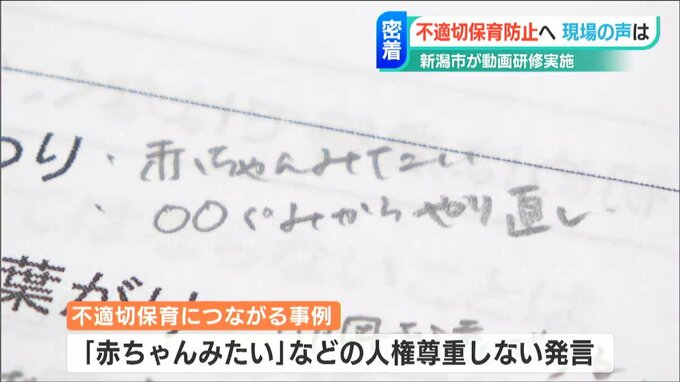 密着
不適切保育防止へ 現場の声は
新潟市が動画研修実施
わり・赤ちゃんみたい
・〇〇ぐみからやり直し
葉がい
不適切保育につながる事例
「赤ちゃんみたい」などの人権尊重しない発言